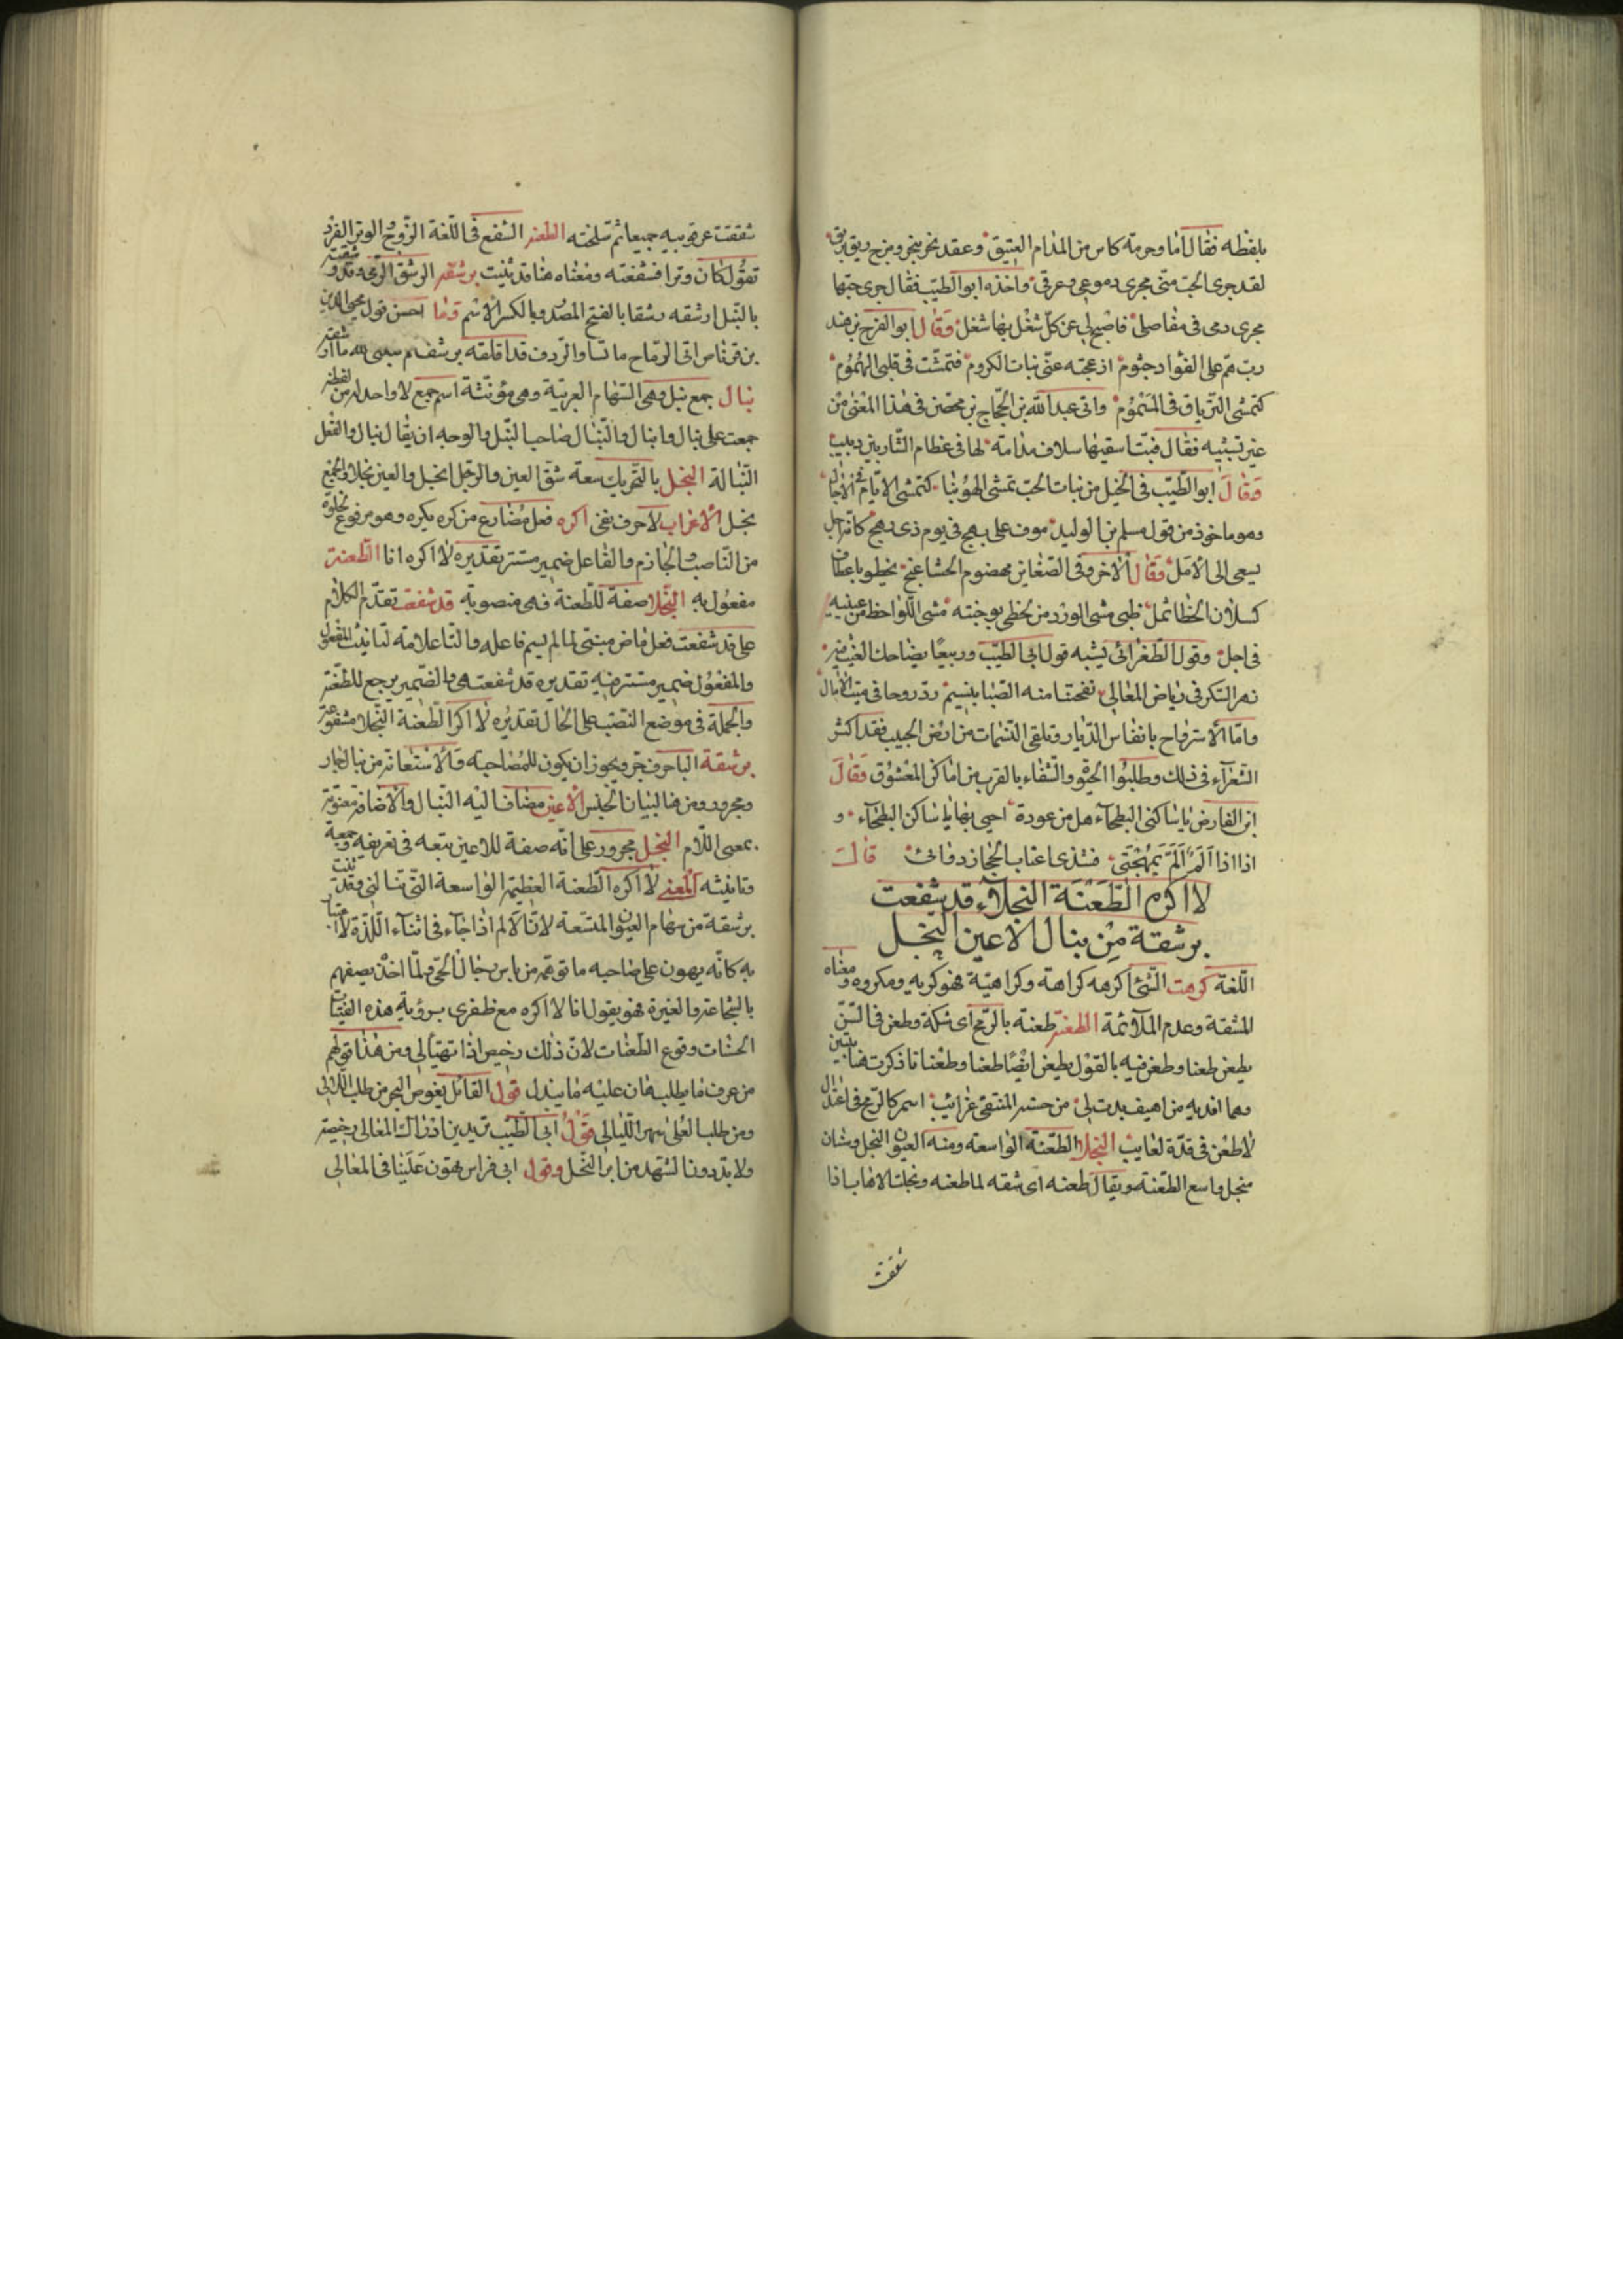 بلفظه فقال اما وحرمة كاس من المدام العتيق وعقد نحر بنحر ومزج ريق بريق
لقد جرى الحب منى مجرى دموعى وعرقى واخذه ابو الطيب فقال جرى حبها
مجرى دمى فى مفاصلى فاصبح لى عن كل شغل بها شغل وقال ابو الفرج بن هند
رب هم على الفؤاد جثوم ازعجته عنى بنات الكروم فتمشت فى قلبى المهموم
كتمشى الترياق فى المسموم واتى عبد الله بن الحجاج بن محصن فى هذا المعنى من
غير تشبيه فقال فبتا سقيتها سلاف مدامة لها فى عظام الشاربين دبيب
وقال ابو الطيب فى الخيل من بنات الحب تمشى الهوينا كتمشى الايام فى الاجال
وهو ماخوذ من قول مسلم بن الوليد موف على مهج فى يوم ذى رهج كانه اجل
يسعى الى الامل وقال الاخر وفى الصغاين مهضوم الحشا غنج يخطو باعطاف
كسلان الخطا ثمل ظبى مشى الورد من لحظى بوجنته مشى اللواحظ من عينيه
فى اجل وقول الطغرائى يشبه قول ابى الطيب وربيعا يضاحك الغيث فيه
زهر الشكر فى رياض المعالى نفحتنا منه الصبا بنسيم رد روحا فى ميت الامال
واما الاسترواح بانفاس الديار وتلقى النسمات من ارض الحبيب فقد اكثر
الشعراء فى ذلك وطلبوا الحيوة والشفاء بالقرب من اماكن المعشوق وقال
ابن الفارض يا ساكنى البطحاء هل من عودة احيى بها يا ساكن البطحاء و
اذا اذا الم الم بمهجتى فشذى اعتاب الحجاز دوائى قال
لا اكره الطعنة النجلاء قد شفعت
برشقة من نبال الاعين النجل
اللغة كرهت الشئ اكرهه كراهة وكراهية فهو كريه ومكروه ومعناه
المشقة وعدم الملائمة الطعنة طعنه بالرمح اى شكة وطعن فى السن
يطعن طعنا وطعن فيه بالقول يطعن ايضا طعنا وطعنانا ذكرت هنا بيتين
وهما افديه من اهيف بدت لى من حسنه المنتقى غرائب اسمر كالرمح فى اعتدال
لا طعن فى قده لعايب النجلا الطعنة الواسعة ومنه العيون النجل وسنان
منجل واسع الطعنة ويقال طعنه اى شقه لما طعنه ونجلت الاهاب اذا
شققت
شققت عرقوبيه جميعا ثم سلخته الطعنة الشفع فى اللغة الزوج والوتر الفرد
تقول كان وترا فشفعته ومعناه هنا قد ثنيت برشقة الرشق الرمى وقد رشقته
بالنبل ارشقه رشقا بالفتح المصدر وبالكسر الاسم وما احسن قول محيى الدين
بن قرناص اتى الرماح ماتسا والردف قد اقلقه
نبال جمع نبل وهى السهام العربية وهى مؤنثة اسم جمع لا واحد له من لفظه
جمعت على نبال وانبال والنبال صاحب النبل والوجه ان يقال نبال والفعل
النبالة النجل بالتحريك سعة شق العين والرجل انجل والعين نجلا والجمع
نجل الاعراب لا حرف نفى اكره فعل مضارع من كره يكره وهو مرفوع لخلوه
من الناصب والجازم والفاعل ضمير مستتر تقديره لا اكره انا الطعنة
مفعول به النجلا صفة للطعنة فهى منصوبة قد شفعت تقدم الكلام
على قد شفعت فعل ماض مبنى لما لم يسم فاعله والتا علامة لتانيث المفعول
والمفعول ضمير مستتر فيه تقديره قد شفعت هى والضمير يرجع للطعنة
والجملة فى موضع النصب على الحال تقديره لا اكره الطعنة النجلا مشفوعة
برشقة البا حرف جر ويجوز ان يكون للمصاحبة والاستعانة من نبال جار
ومجرور ومن هنا لبيان الجنس الاعين مضاف اليه النبال والاضافة معنوية
بمعنى اللام النجل مجرور على انه صفة للاعين تتبعه فى تعريفه وجمعه
وتانيثه المعنى لا اكره الطعنة العظيمة الواسعة التى تنالنى وقد ثنيت
برشقة من سهام العيون المتسعة لان الالم اذا جاء فى اثناء اللذة لا
به كانه يهون على صاحبه ما توهمه من باس رجال الحى ولما اخذ يصفهم
بالشجاعة والغيرة فهو يقول انا لا اكره مع ظفرى برؤية هذه الفتيات
الحسنات وقوع الطعنات لان ذلك رخيص اذا تهيأ لى ومن هذا قولهم
من عرف ما يطلب هان عليه ما يبذل قول القائل يغوص البحر من طلب اللالى
ومن طلب العلى سهر الليالى وقول ابى الطيب تريدين ادراك المعالى رخيصة
ولا بد دون الشهد من ابر النحل وقول ابى فراس يهون علينا فى المعالى